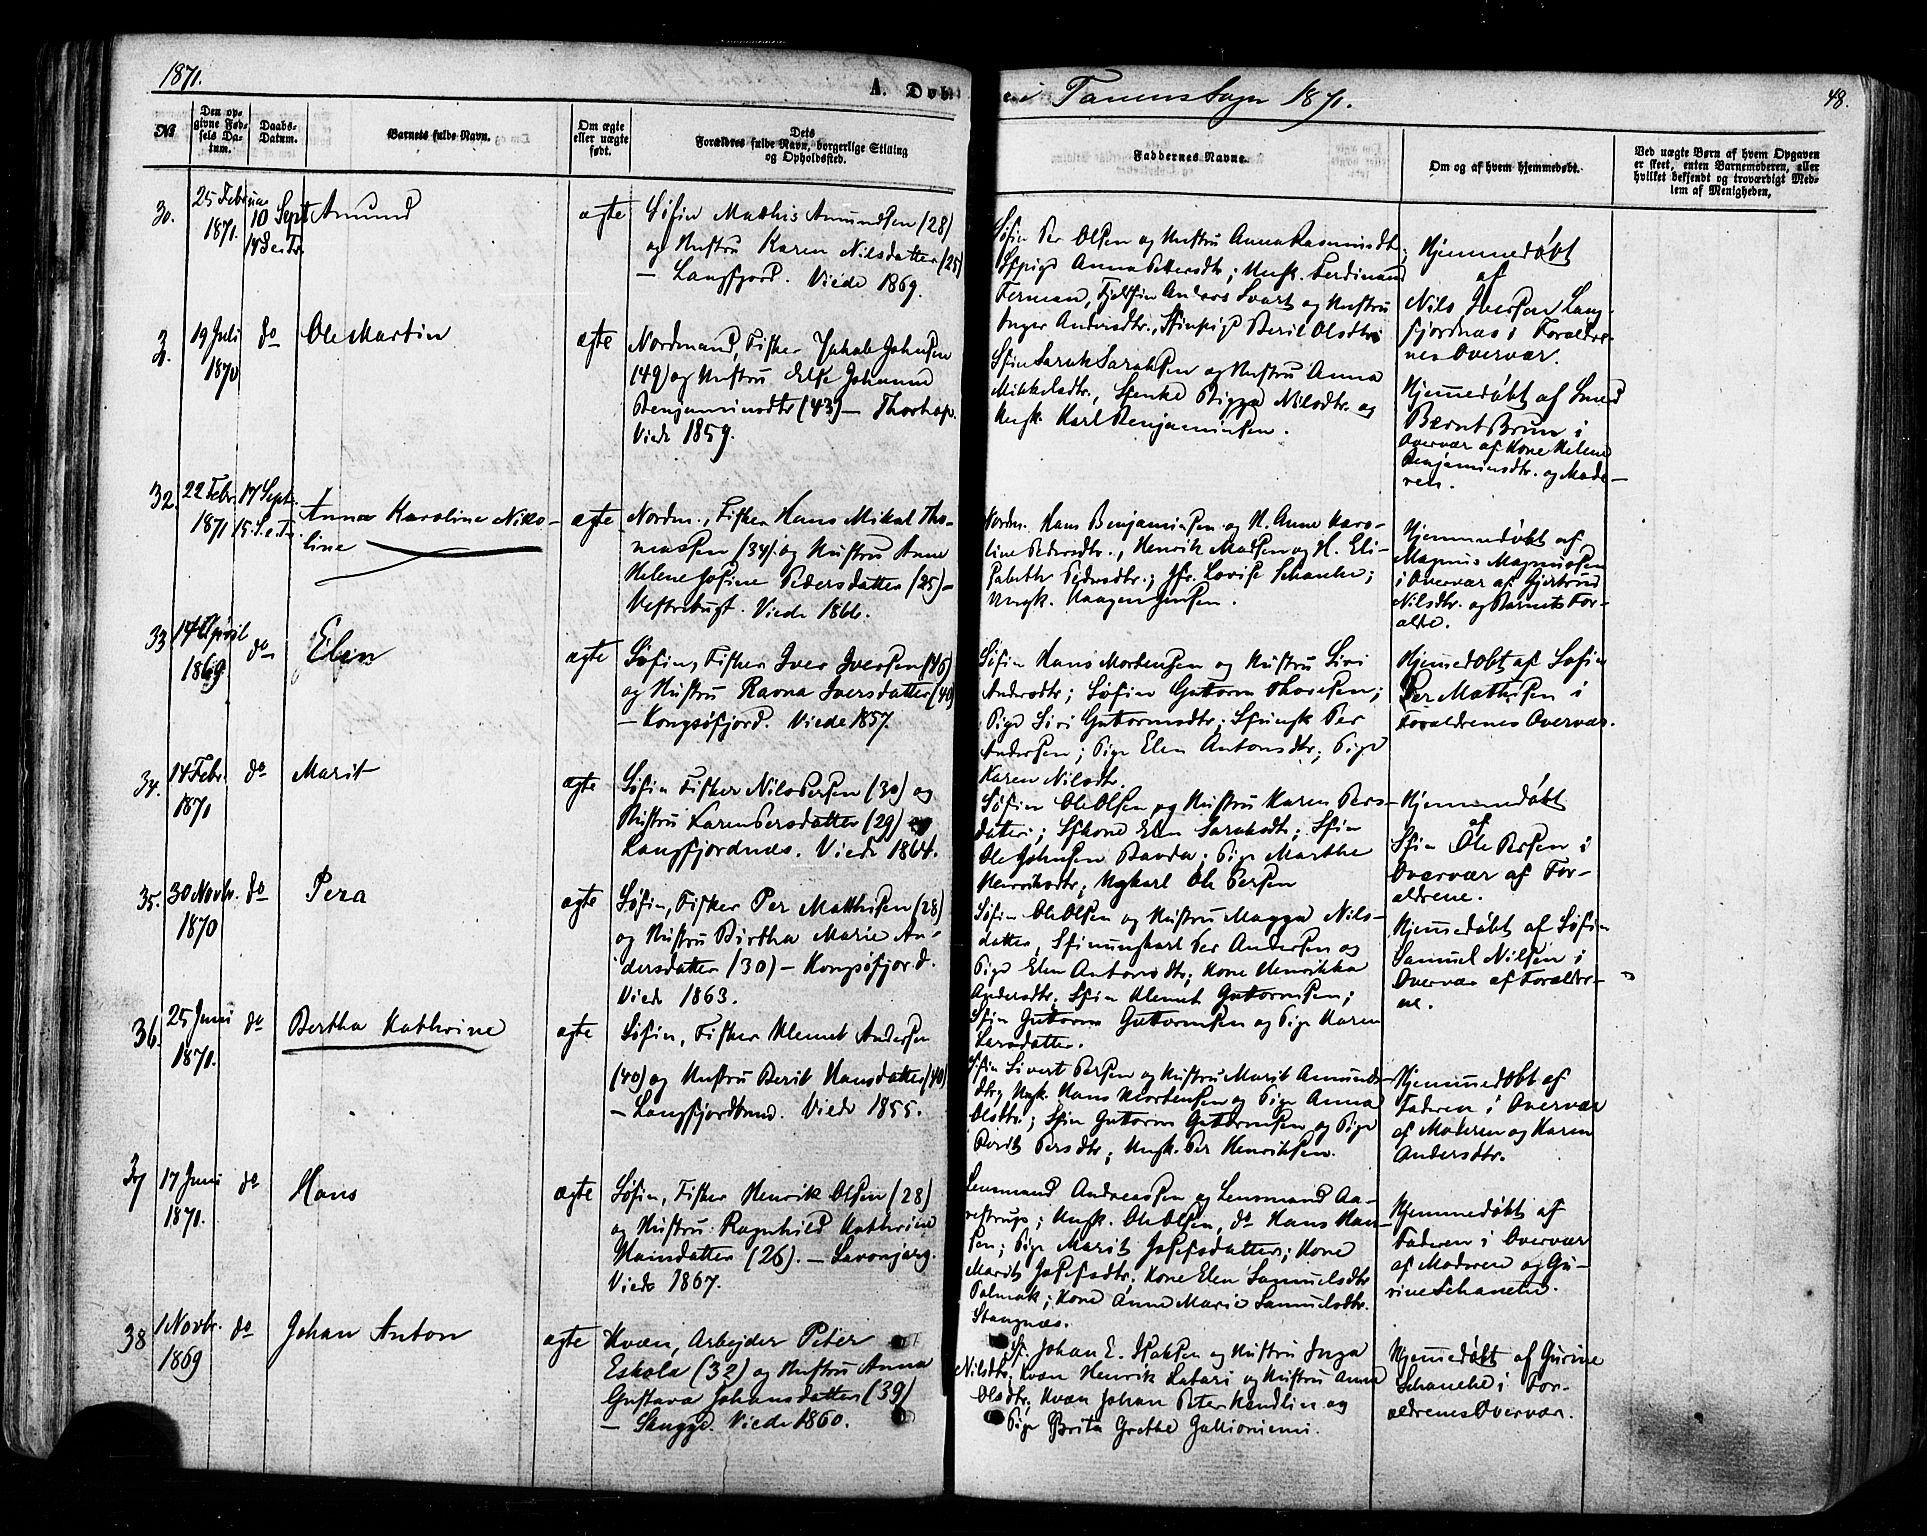 1871.
A. Døb
i Tanens Sogn 1871.
48.
No
Den opgivne Fødsels Datum.
Daabs-Datum.
Barnets fulde Navn.
Om ægte eller uægte født.
Dets Forældres fulde Navn, borgerlige Stilling og Opholdssted.
Faddernes Navne.
Om og af hvem hjemmedøbt.
Ved uægte Børn af hvem Opgaven er skeet, enten Barnemoderen, eller hvilket bekjendt og troværdigt Medlem af Menigheden.
30.
25 Februar
1871.
10 Sept
14 S. e. Tr.
Amund
ægte
Søfin Mathis Amundsen (28)
og Hustru Karen Nilsdatter (25)
— Langfjord. Viede 1869.
Søfin Per Olsen og Hustru Anna Rasmusdtr;
Sfpige Anna Pettersdtr; Ungk. Ferdinand
Ferman, Fjeldfin Anders Svart og Hustru
Inger Andersdtr., Sfinpige Berit Olsdtr
Hjemmedøbt
af
Nils Iversen Lang-
fjordnæs i Forældre-
nes Overvær.
31.
19 Juli
1870
do
Ole Martin
ægte
Nordmand, Fisker Jakob Johnsen
(49) og Hustru Else Johanne
Benjaminsdtr (43) — Thorhop.
Viede 1859.
Sfin Sarak Saraksen og Hustru Anna
Mikkelsdtr, Sfenke Bigga Nilsdtr. og
Ungk. Karl Benjaminsen.
Hjemmedøbt af Smed
Bernt Brun i
Overvær af Kone Helene
Benjaminsdtr. og Mode-
ren.
32.
22 Febr.
1871
17 Sept.
15 S. e. Tr.
Anna Karoline Niko-
line
ægte
Nordm., Fisker Hans Mikal Tho-
massen (34) og Hustru Anne
Helene Josine Pedersdatter (25) —
Vestrebugt. Viede 1866.
Nordm. Hans Benjaminsen og H. Anne Karo-
line Pedersdtr., Henrik Madsen og H. Eli-
sabeth Pedersdtr.; Jfr. Lovise Schanche;
Ungk. Haagen Jensen.
Hjemmedøbt af
Magnus Magnussen
i Overvær af Gjertrud
Nilsdtr. og Barnets For-
ældre.
33
14 April
1869.
do
Elen
ægte
Søfin, Fisker Iver Iversen (46)
og Hustru Ravna Iversdatter (40)
— Kongsøfjord. Viede 1857.
Søfin Hans Mortensen og Hustru Siri
Andersdtr; Søfin Guttorm Thoresen;
Pige Siri Guttormsdtr; Sfungk Per
Andersen; Pige Elen Antonsdtr; Pige
Karen Nilsdtr.
Hjemmedøbt af Søfin
Per Mathisen i
Forældrenes Overvær.
34.
14 Febr.
1871
do
Marit
ægte
Søfin Fisker Nils Persen (30) og
Hustru Karen Persdatter (29)
Langfjordnæs. Viede 1864.
Søfin Ole Olsen og Hustru Karen Pers-
datter; Sfkone Elen Saraksdtr; Sfin
Ole Johnsen Bavda; Pige Marthe
Henriksdtr; Ungkarl Ole Persen
Hjemmedøbt
af
Sfin Ole Persen i
Overvær af For-
ældrene.
35.
30 Novbr.
1870
do
Pera
ægte
Søfin, Fisker Per Matthisen (28)
og Hustru Birtha Marie An-
dersdatter (30) — Kongsøfjord.
Viede 1863.
Søfin Ole Olsen og Hustru Magga Nils-
datter, Sfinungkarl Per Andersen og
Pige Elen Antonsdtr; Kone Henrikka
Andersdtr; Sfin Klemet Guttormsen;
Sfin Guttorm Guttormsen og Pige Karen
Larsdatter.
Hjemmedøbt af Søfin
Samuel Nilsen i
Overvær af Forældre-
ne.
36.
25 Juni
1871.
do
Bertha Kathrine
ægte
Søfin, Fisker Klemet Andersen
(40) og Hustru Berit Hansdatter (40)
— Langfjordbund. Viede 1855.
Sfin Sivert Persen og Hustru Marit Amunds-
dtr; Ungk. Hans Mortensen og Pige Anna
Olsdtr; Sfin Guttorm Guttormsen og Pige
Berit Persdtr; Ungk. Per Henriksen.
Hjemmedøbt af
Faderen i Overvær
af Moderen og Karen
Andersdtr.
37
17 Juni
1871.
do
Hans
ægte
Søfin, Fisker Henrik Olsen (28)
og Hustru Ragnhild Kathrine
Hansdatter (26). — Lavonjarg.
Viede 1867.
Lensmand Andreassen og Lensmand Aa-
restrup; Ungk. Ole Olsen, do Hans Han-
sen; Pige Marit Josefsdatter; Kone
Marit Josefsdtr; Kone Elen Samuelsdtr
Polmak; Kone Anne Marie Samuelsdtr.
Stangnæs.
Hjemmedøbt af
Faderen i Overvær
af Moderen og Gu-
rine Schanche.
38
1 Novbr.
1869
do
Johan Anton
ægte
Kvæn, Arbejder Peter
Eskola (32) og Hustru Anna
Gustava Johansdatter (39)
— Langnæs. Viede 1860.
Sf. Johan E. Isaksen og Hustru Inga
Nilsdtr; Kvæn Henrik Latari og Hustru Anna
Olsdtr; Kvæn Johan Peter Kandlin og
Pige Brita Grethe Gallioniemi.
Hjemmedøbt af Gurine
Schanche i For-
ældrenes Overvær.